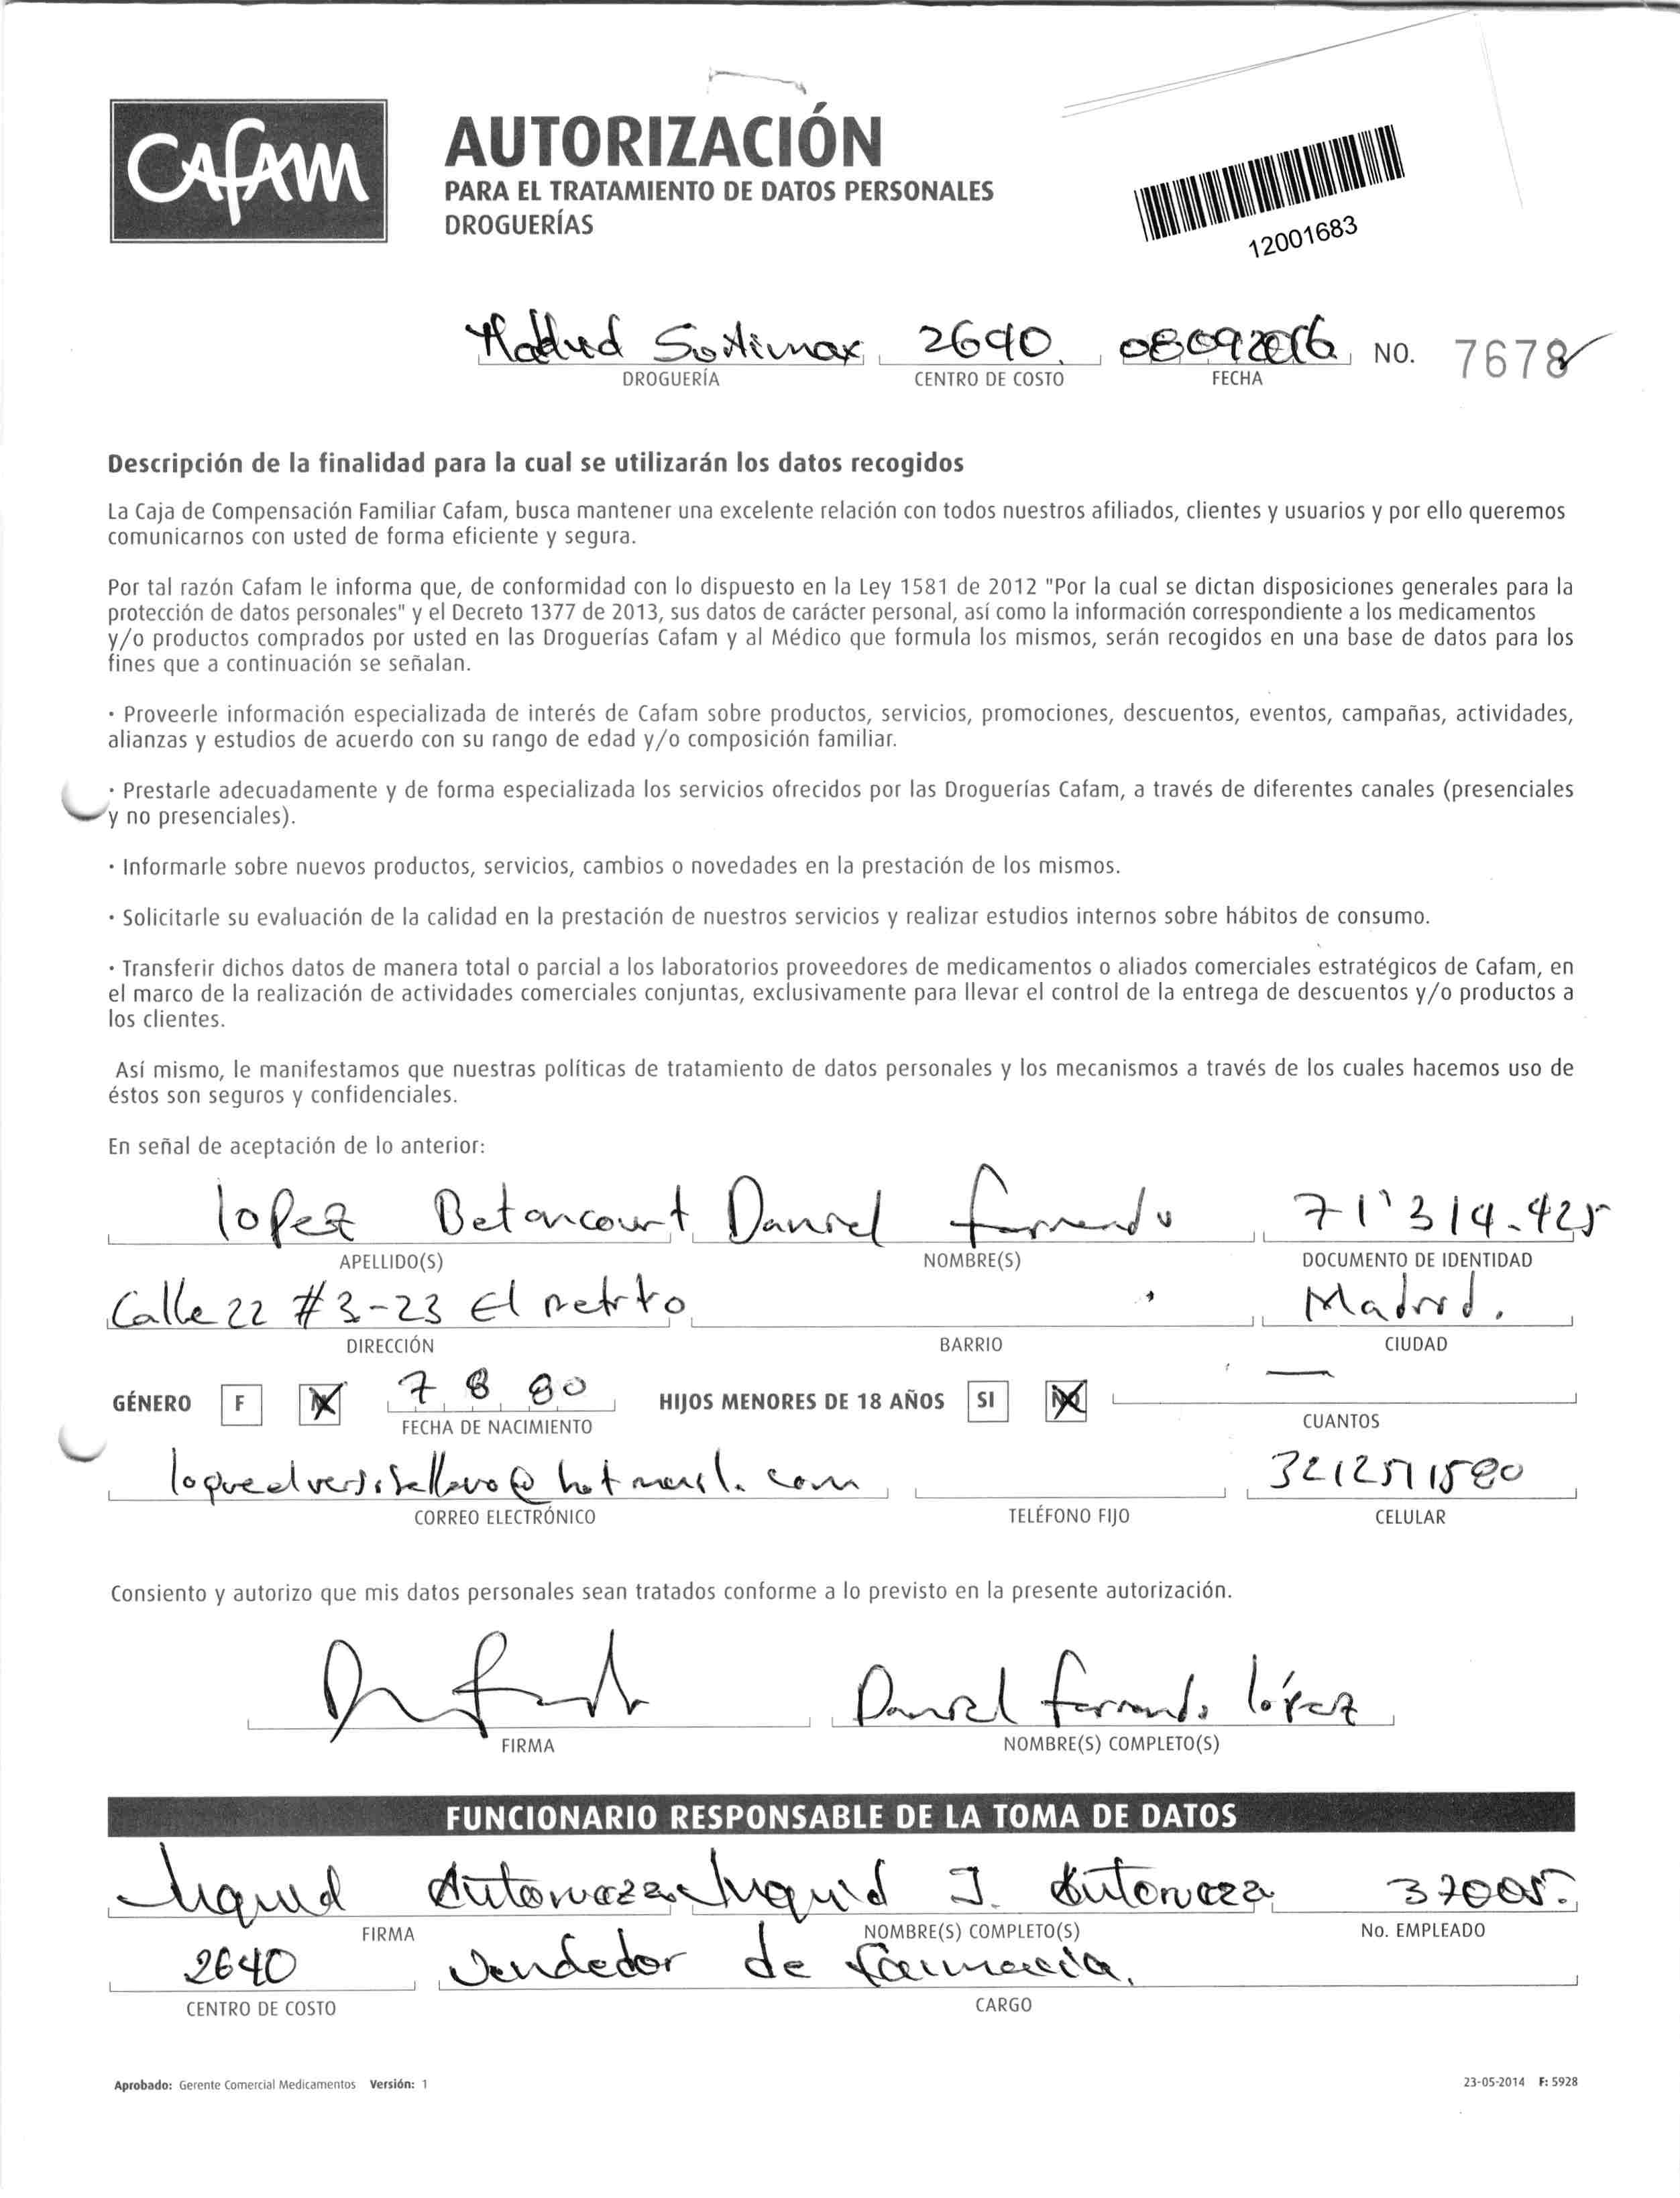 Cafam
AUTORIZACIÓN
PARA EL TRATAMIENTO DE DATOS PERSONALES
DROGUERÍAS
12001683
Madrid 2640 08092016 NO. 7678
DROGUERÍA CENTRO DE COSTO FECHA
Descripción de la finalidad para la cual se utilizarán los datos recogidos
La Caja de Compensación Familiar Cafam, busca mantener una excelente relación con todos nuestros afiliados, clientes y usuarios y por ello queremos
comunicarnos con usted de forma eficiente y segura.
Por tal razón Cafam le informa que, de conformidad con lo dispuesto en la Ley 1581 de 2012 "Por la cual se dictan disposiciones generales para la
protección de datos personales" y el Decreto 1377 de 2013, sus datos de carácter personal, así como la información correspondiente a los medicamentos
y/o productos comprados por usted en las Droguerías Cafam y al Médico que formula los mismos, serán recogidos en una base de datos para los
fines que a continuación se señalan.
· Proveerle información especializada de interés de Cafam sobre productos, servicios, promociones, descuentos, eventos, campañas, actividades,
alianzas y estudios de acuerdo con su rango de edad y/o composición familiar.
· Prestarle adecuadamente y de forma especializada los servicios ofrecidos por las Droguerías Cafam, a través de diferentes canales (presenciales
y no presenciales).
· Informarle sobre nuevos productos, servicios, cambios o novedades en la prestación de los mismos.
· Solicitarle su evaluación de la calidad en la prestación de nuestros servicios y realizar estudios internos sobre hábitos de consumo.
· Transferir dichos datos de manera total o parcial a los laboratorios proveedores de medicamentos o aliados comerciales estratégicos de Cafam, en
el marco de la realización de actividades comerciales conjuntas, exclusivamente para llevar el control de la entrega de descuentos y/o productos a
los clientes.
Así mismo, le manifestamos que nuestras políticas de tratamiento de datos personales y los mecanismos a través de los cuales hacemos uso de
éstos son seguros y confidenciales.
En señal de aceptación de lo anterior:
lopez Betancourt Daniel fernando 71'314.425
APELLIDO(S) NOMBRE(S) DOCUMENTO DE IDENTIDAD
Calle 22 #3-23 El retrto Madrid.
DIRECCIÓN BARRIO CIUDAD
GÉNERO F 7 8 80 HIJOS MENORES DE 18 AÑOS SI NO —
FECHA DE NACIMIENTO CUANTOS
@hotmail.com 3212511580
CORREO ELECTRÓNICO TELÉFONO FIJO CELULAR
Consiento y autorizo que mis datos personales sean tratados conforme a lo previsto en la presente autorización.
Daniel fernando lópez
FIRMA NOMBRE(S) COMPLETO(S)
FUNCIONARIO RESPONSABLE DE LA TOMA DE DATOS
J. 37005.
FIRMA NOMBRE(S) COMPLETO(S) No. EMPLEADO
2640 Vendedor de farmacia.
CENTRO DE COSTO CARGO
Aprobado: Gerente Comercial Medicamentos Versión: 1 23-05-2014 F: 5928